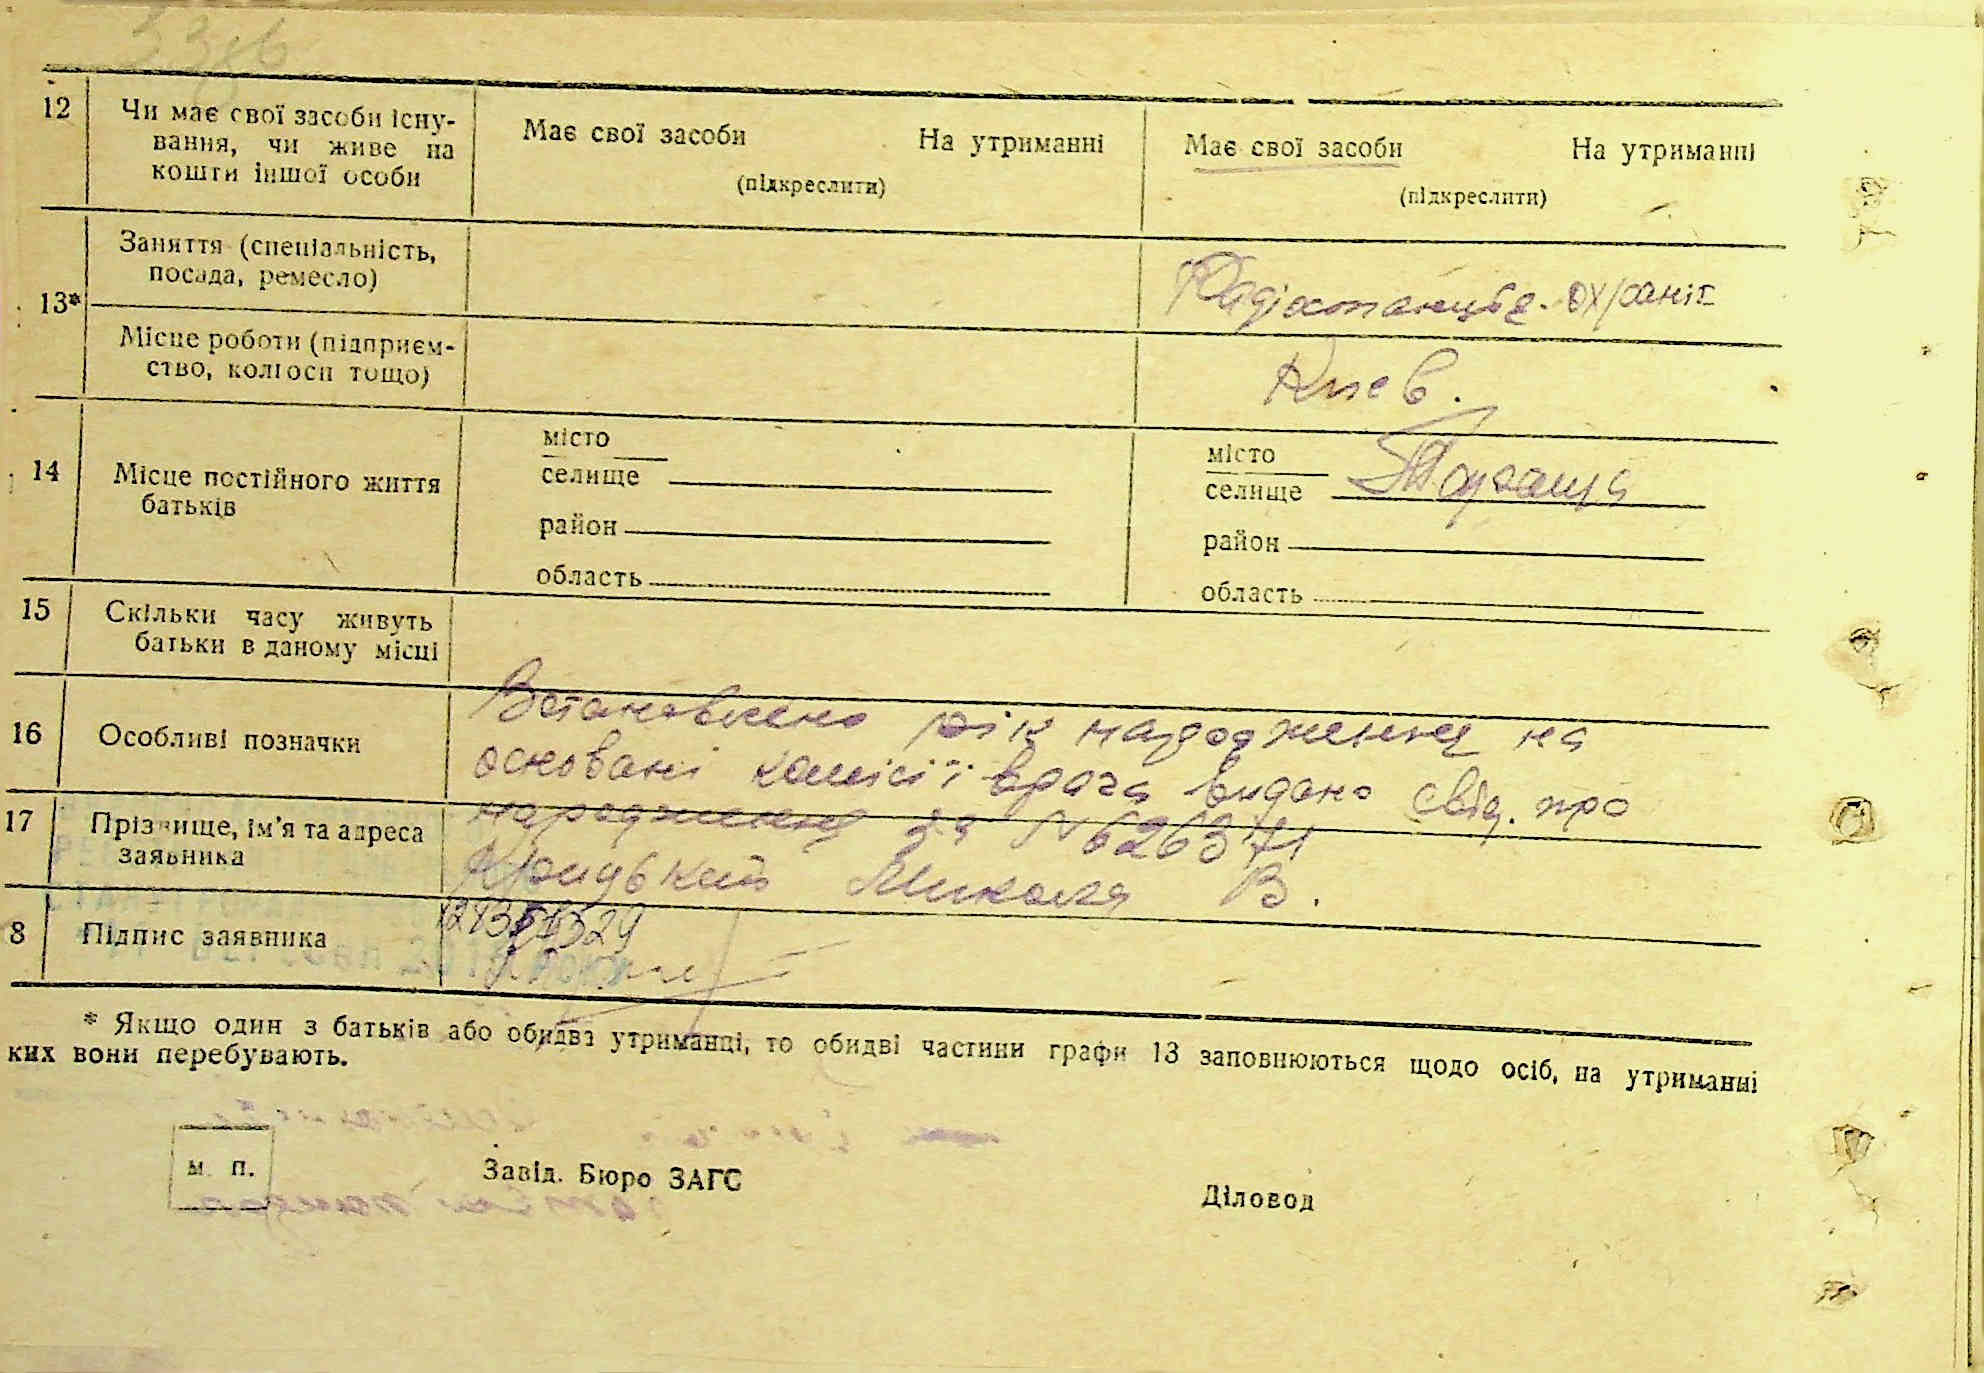 12
Чи має свої засоби існу-
вання, чи живе на
кошти іншої особи
Має свої засоби На утриманні
(підкреслити)
Має свої засоби На утриманні
(підкреслити)
13*
Заняття (спеціальність,
посада, ремесло)
Радіостанція. охраник
Місце роботи (підприєм-
ство, колгосп тощо)
Киев.
14
Місце постійного життя
батьків
місто
селище
район
область
місто
селище
район
область
15
Скільки часу живуть
батьки в даному місці
16
Особливі позначки
Встановлено рік народження на
основані комісії врача видано свід. про
народження за N 626371
17
Прізвище, ім’я та адреса
заявника
Микола В.
8
Підпис заявника
* Якщо один з батьків або обидва утриманці, то обидві частини графи 13 заповнюються щодо осіб, на утриманні
ких вони перебувають.
м. п.
Завід. Бюро ЗАГС
Діловод